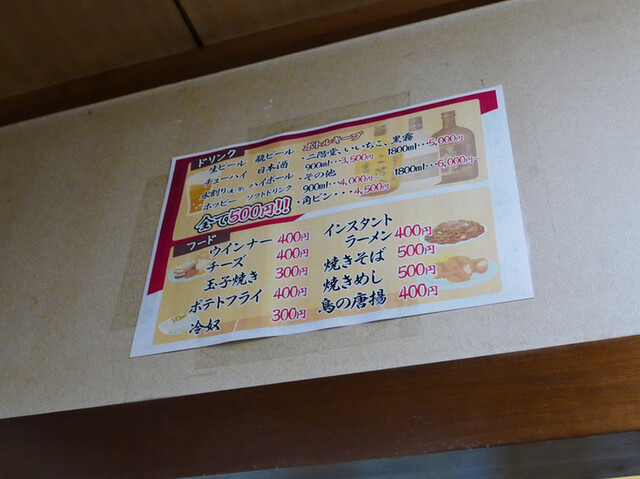 ドリンク
生ビール 瓶ビール
チューハイ 日本酒
水割り ハイボール
ホッピー ソフトドリンク
全て500円!!
ボトルキープ
・二階堂、いいちこ、黒霧
900ml・・・3,500円 1800ml・・・5,000円
・その他
900ml・・・4,000円～ 1800ml・・・6,000円～
・角ビン・・・4,500円
フード
ウインナー 400円
チーズ 400円
玉子焼き 300円
ポテトフライ 400円
冷奴 300円
インスタント
ラーメン 400円
焼きそば 500円
焼きめし 500円
鳥の唐揚 400円